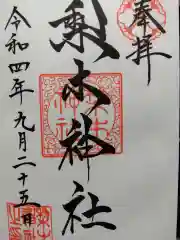 奉拝
梨木神社
令和四年九月二十五日